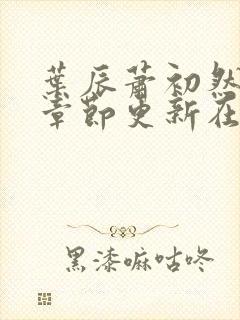 葉辰蕭初然
章節更新在
黑漆嘛咕咚